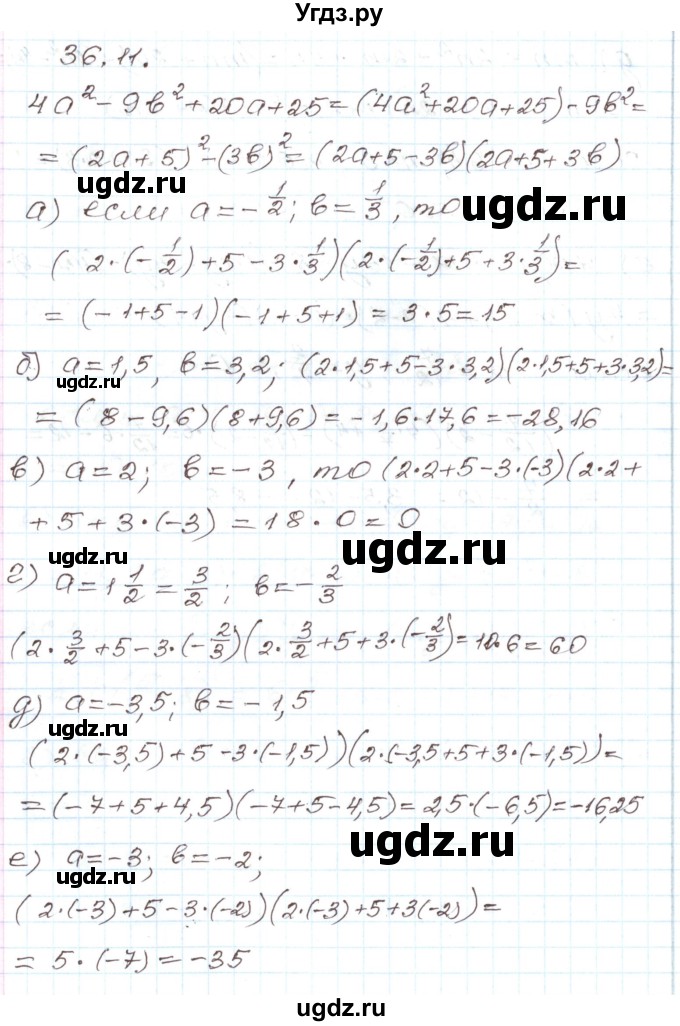 Угдз.ру
36.11.
4a² - 9b² + 20a + 25 = (4a² + 20a + 25) - 9b² =
= (2a + 5)² - (3b)² = (2a + 5 - 3b)(2a + 5 + 3b)
ugdz.ru
ugdz.ru
а) если a = -1/2; b = 1/3, то
(2·(-1/2) + 5 - 3·1/3)(2·(-1/2) + 5 + 3·1/3) =
= (-1 + 5 - 1)(-1 + 5 + 1) = 3·5 = 15
б) a = 1,5, b = 3,2; (2·1,5 + 5 - 3·3,2)(2·1,5 + 5 + 3·3,2) =
ugdz.ru
= (8 - 9,6)(8 + 9,6) = -1,6·17,6 = -28,16
в) a = 2; b = -3, то (2·2 + 5 - 3·(-3)(2·2 +
+ 5 + 3·(-3) = 18·0 = 0
ugdz.ru
ugdz.ru
г) a = 1 1/2 = 3/2; b = -2/3
(2·3/2 + 5 - 3·(-2/3)(2·3/2 + 5 + 3·(-2/3) = 10·6 = 60
д) a = -3,5; b = -1,5
ugdz.ru
(2·(-3,5) + 5 - 3·(-1,5))(2·(-3,5 + 5 + 3·(-1,5)) =
= (-7 + 5 + 4,5)(-7 + 5 - 4,5) = 2,5·(-6,5) = -16,25
ugdz.ru
е) a = -3; b = -2;
ugdz.ru
(2·(-3) + 5 - 3·(-2))(2·(-3) + 5 + 3(-2)) =
= 5·(-7) = -35
ugdz.ru